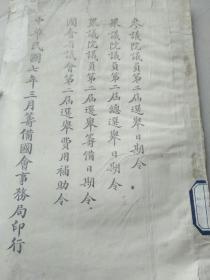 參議院議員第二屆選舉日期令
衆議院議員第二屆總選舉日期令
衆議院議員第二屆選舉籌備日期令
國會省議會第二屆選舉費用補助令
中華民國七年三月籌備國會事務局印行